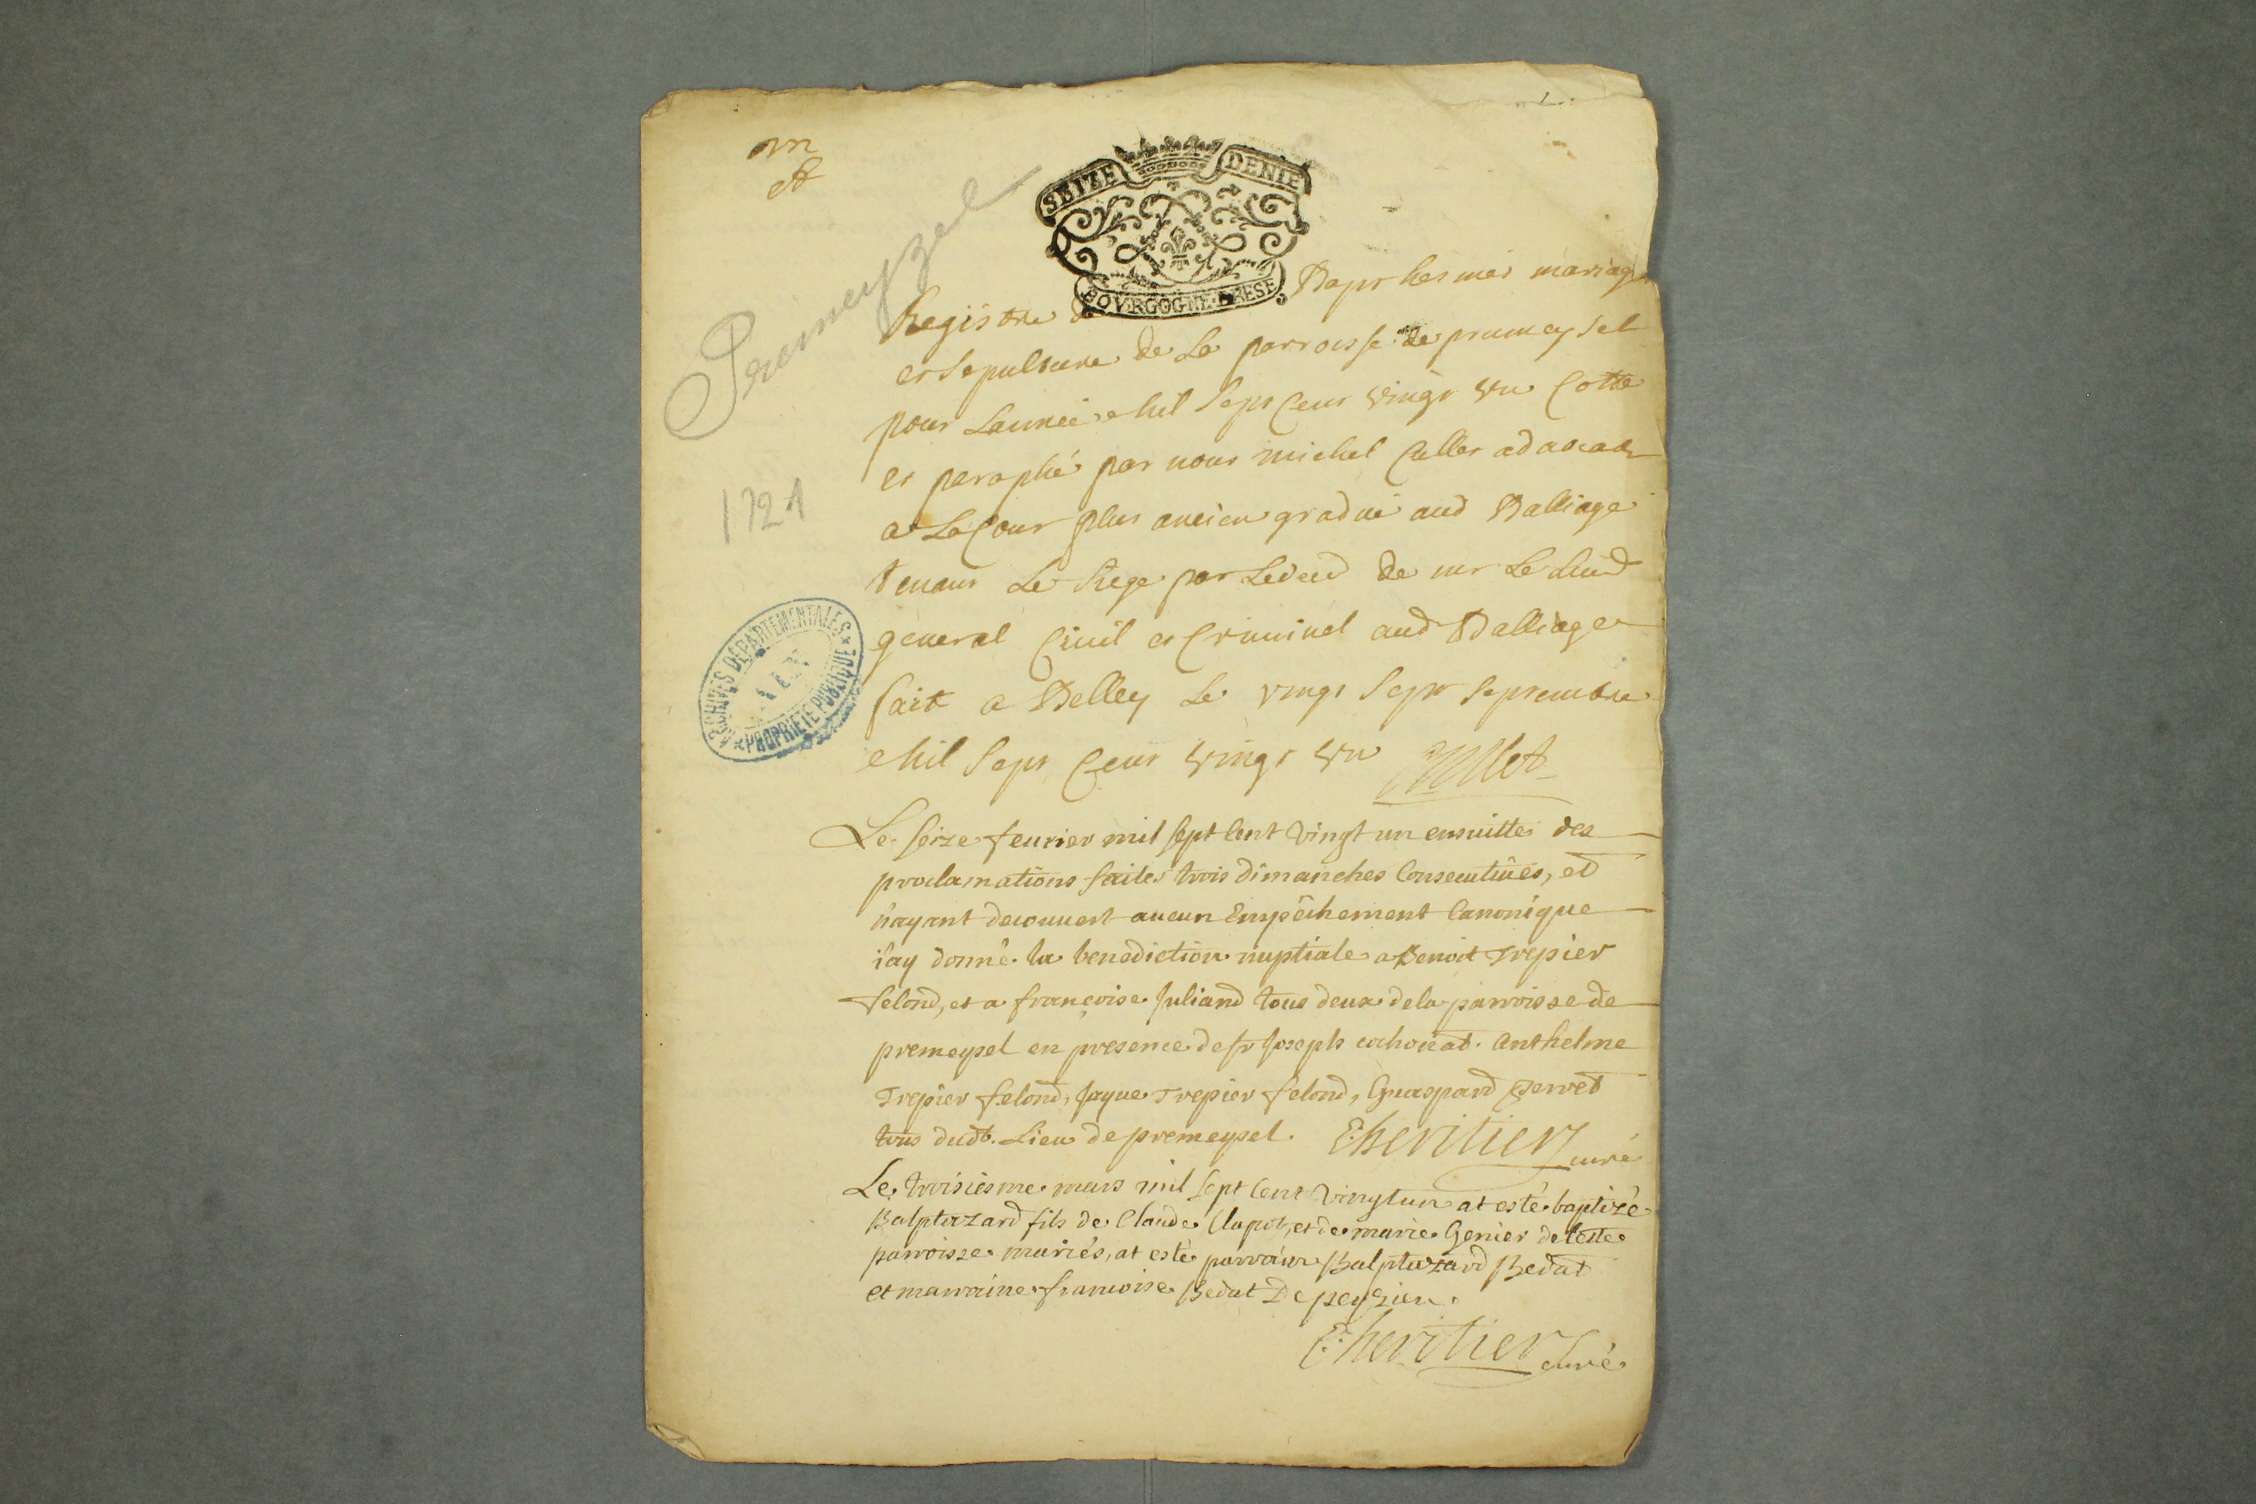 Premeyzel
SEIZE DENIE
BOVRGOGNE BRESE
Registre de Bapthesmes mariage
et Sepulture de La parroisse de prumeysel
pour Lannée Mil Sept Cent Vingt Vn Cotté
et peraphé par nous michel Cullet advocat
a La Cour plus ancien gradué aud Balliage
tenant Le Siege par de mr Le Lieud
general Civil et Criminel aud Balliage
fait a Belley Le vingt Sept Septembre
Mil Sept Cent Vingt Vn Cullet
1721
ARCHIVES DEPARTEMENTALES
AIN
PROPRIETE PUBLIQUE
Le seize feurier mil sept Cent Vingt un ensuitte des
proclamations faites trois dimanches Consecutiues, et
n'ayant decouuert aucun Empêchement Canonique
i'ay donné la benediction nuptiale a Benoit Trepier
felond, et a françoise Juliand tous deux de la parroisse de
premeysel en presence de sr Joseph cochonat. Anthelme
Trepier felond, Jaque Trepier felond, Guaspard perret
tous dudt. Lieu de premeysel. E: heritier curé
Le troisiesme mars mil sept Cent Vingt un at esté baptizé
Balptazard fils de Claude Clapot, et de marie Genier de Ceste
parroisse mariés, at esté parrain Balptazard Bedat
et marraine francoise Bedat De peyzieu.
E: heritier curé